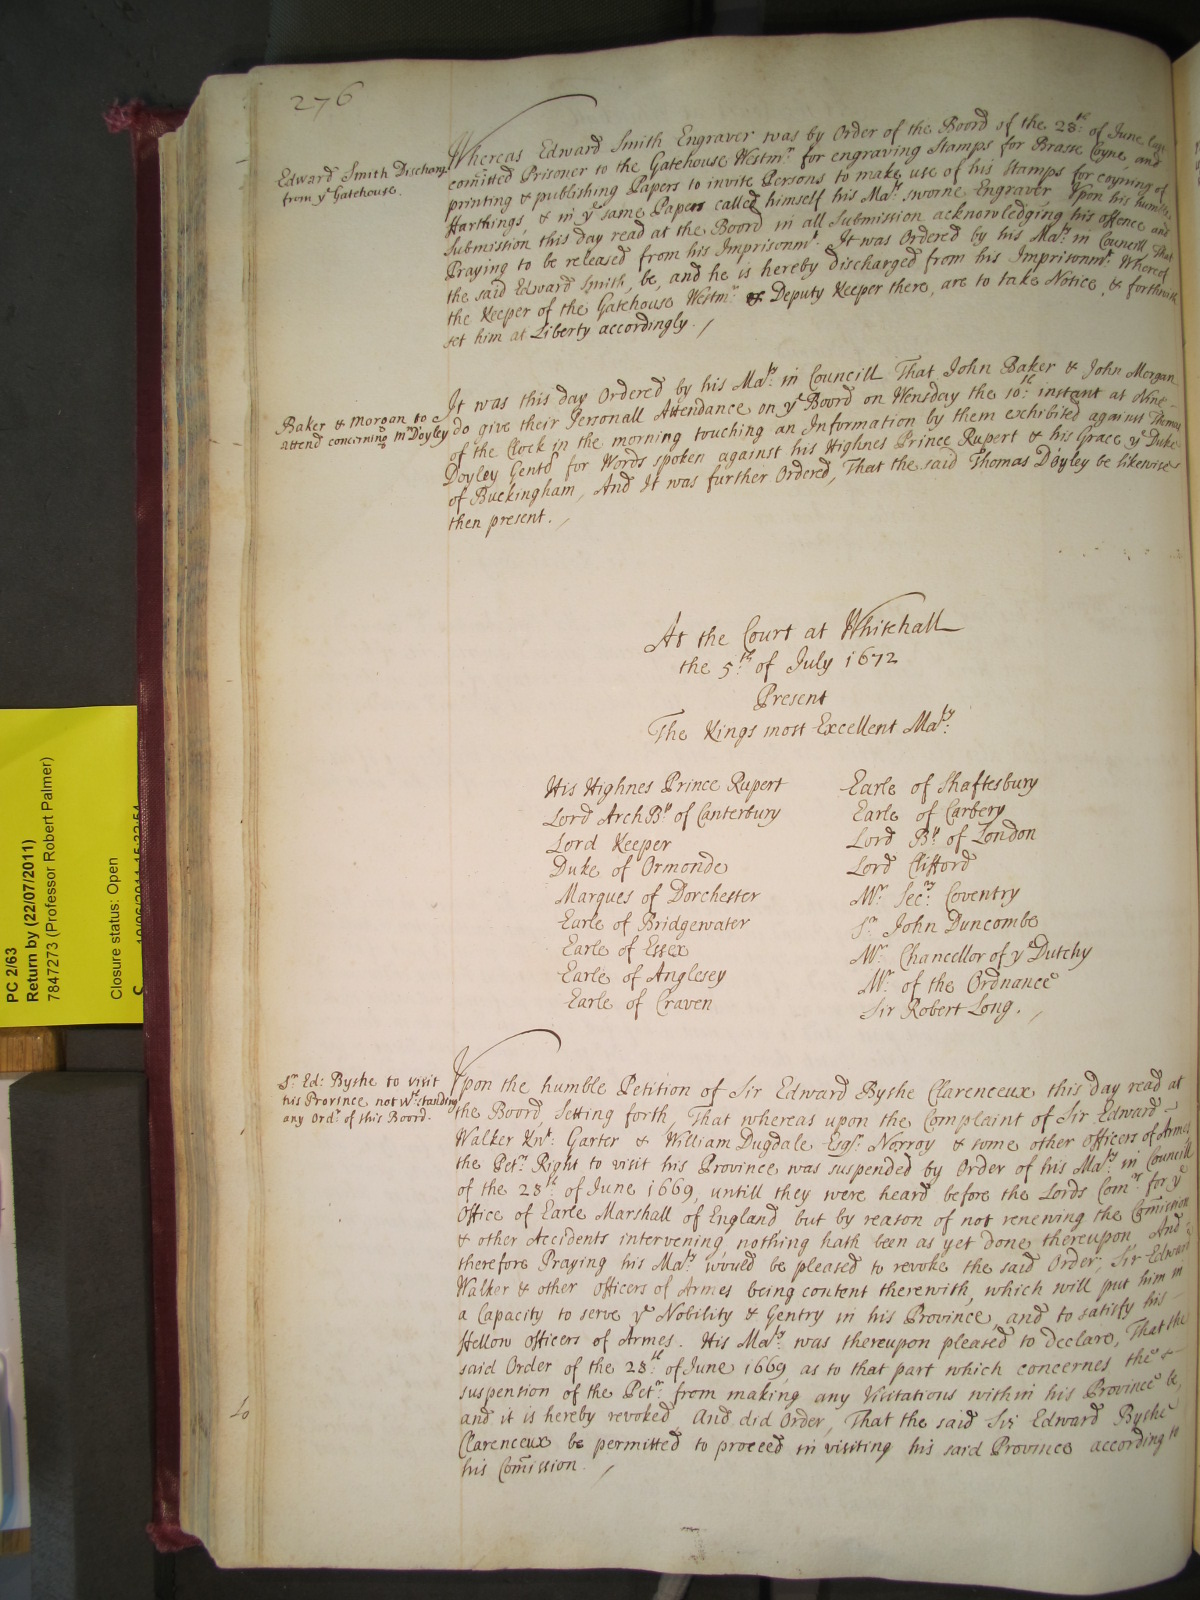 276
Edward Smith Discharg
from yᵉ Gatehouse.
Whereas Edward Smith Engraver was by Order of the Board of the 28th of June last
comitted Prisoner to the Gatehouse Westmr for engraving Stamps for Brasse Coyne, and
printing & publishing Papers to invite Persons to make use of his Stamps for coyning of
ffarthings, & in yᵉ same Papers called himself his Maᵗˢ sworne Engraver Upon his humble
Submission this day read at the Board in all Submission acknowledging his offence and
Praying to be released from his Imprisonmᵗ. It was Ordered by his Maᵗʸ in Councill That
the said Edward Smith, be, and he is hereby discharged from his Imprisonmᵗ. Whereof
the Keeper of the Gatehouse Westmʳ or Deputy Keeper there, are to take Notice, & forthwith
set him at Liberty accordingly. /
Baker & Morgan to
attend concerning mʳ Doyley
It was this day Ordered by his Maᵗʸ in Councill That John Baker & John Morgan
do give their Personall Attendance on yᵉ Board on Wensday the 10th instant at Nine
of the Clock in the morning touching an Information by them exhibited against Thomas
Doyley Gentᵈ for Words spoken against his Highnes Prince Rupert & his Grace yᵉ Duke
of Buckingham, And It was further Ordered, That the said Thomas Doyley be likewise
then present. /
At the Court at Whitehall
the 5th of July 1672
Present
The Kings most Excellent Maᵗʸ:
His Highnes Prince Rupert
Lord ArchBᵖ of Canterbury
Lord Keeper
Duke of Ormonde
Marques of Dorchester
Earle of Bridgewater
Earle of Essex
Earle of Anglesey
Earle of Craven
Earle of Shaftesbury
Earle of Carbery
Lord Bᵖ of London
Lord Clifford
Mʳ Secʳʸ: Coventry
Sʳ John Duncombe
Mʳ Chancellor of yᵉ Dutchy
Mʳ of the Ordnance
Sir Robert Long. /
Sʳ Ed: Byshe to visit
his Province not wᵗstanding
any Ordʳ of this Board.
Upon the humble Petition of Sir Edward Byshe Clarenceux this day read at
the Board, Setting forth, That whereas upon the Complaint of Sir Edward
Walker Knᵗ: Garter & William Dugdale Esqʳ Norroy & some other officers of Armes
the Petʳˢ Right to visit his Province was suspended by Order of his Maᵗʸ in Councill
of the 28th of June 1669, untill they were heard before the Lords Comʳˢ for yᵉ
Office of Earle Marshall of England, but by reason of not renewing the Comission
& other Accidents intervening, nothing hath been as yet done thereupon, And
therefore Praying his Maᵗʸ would be pleased to revoke the said Order; Sir Edward
Walker & other officers of Armes being content therewith, which will put him in
a Capacity to serve yᵉ Nobility & Gentry in his Province, and to satisfy his
ffellow Officers of Armes. His Maᵗʸ was thereupon pleased to declare, That the
said Order of the 28th of June 1669, as to that part which concernes the
suspension of the Petʳ from making any Visitations within his Province be,
and it is hereby revoked And did Order, That the said Sir Edward Byshe
Clarenceux be permitted to proceed in visiting his said Province according to
his Comission. /
PC 2/63
Return by (22/07/2011)
7847273 (Professor Robert Palmer)
Closure status: Open